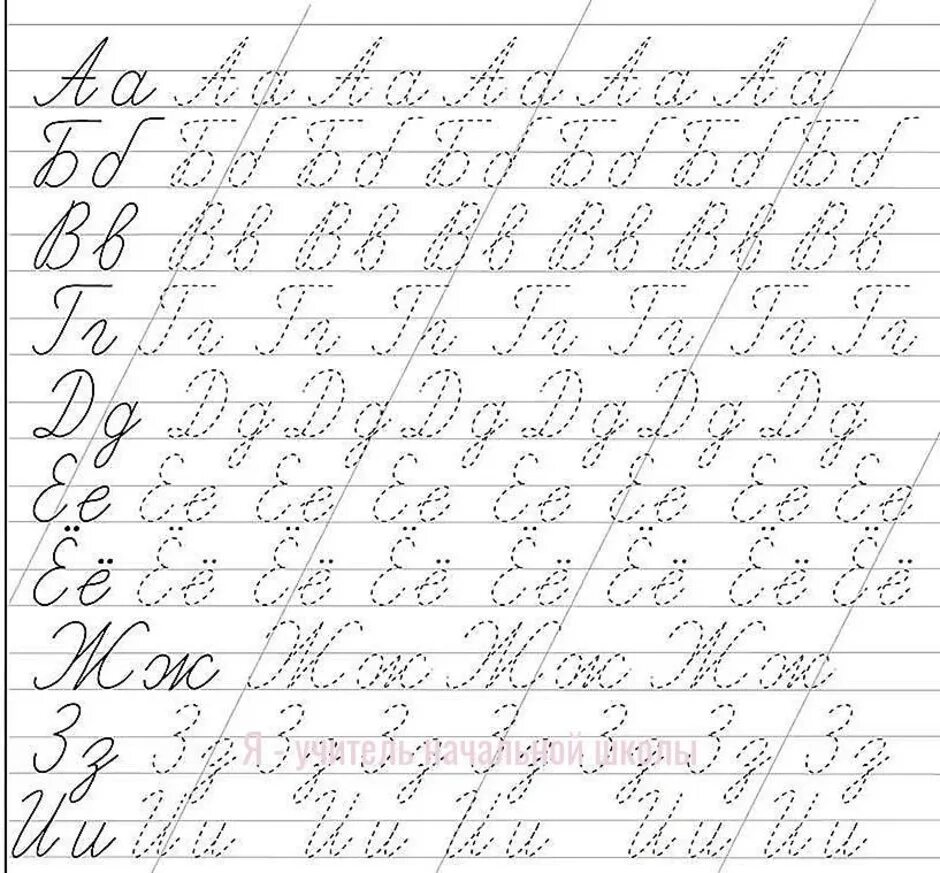 Аа Аа Аа Аа Аа Аа
Бб Бб Бб Бб Бб Бб Бб
Вв Вв Вв Вв Вв Вв Вв
Гг Гг Гг Гг Гг Гг Гг Гг
Дд Дд Дд Дд Дд Дд Дд
Ее Ее Ее Ее Ее Ее Ее Ее
Ёё Ёё Ёё Ёё Ёё Ёё Ёё Ёё
Жж Жж Жж Жж
Зз Зз Зз Зз Зз Зз Зз Зз
Я - учитель начальной школы
Ии Ии Ии Ии Ии Ии